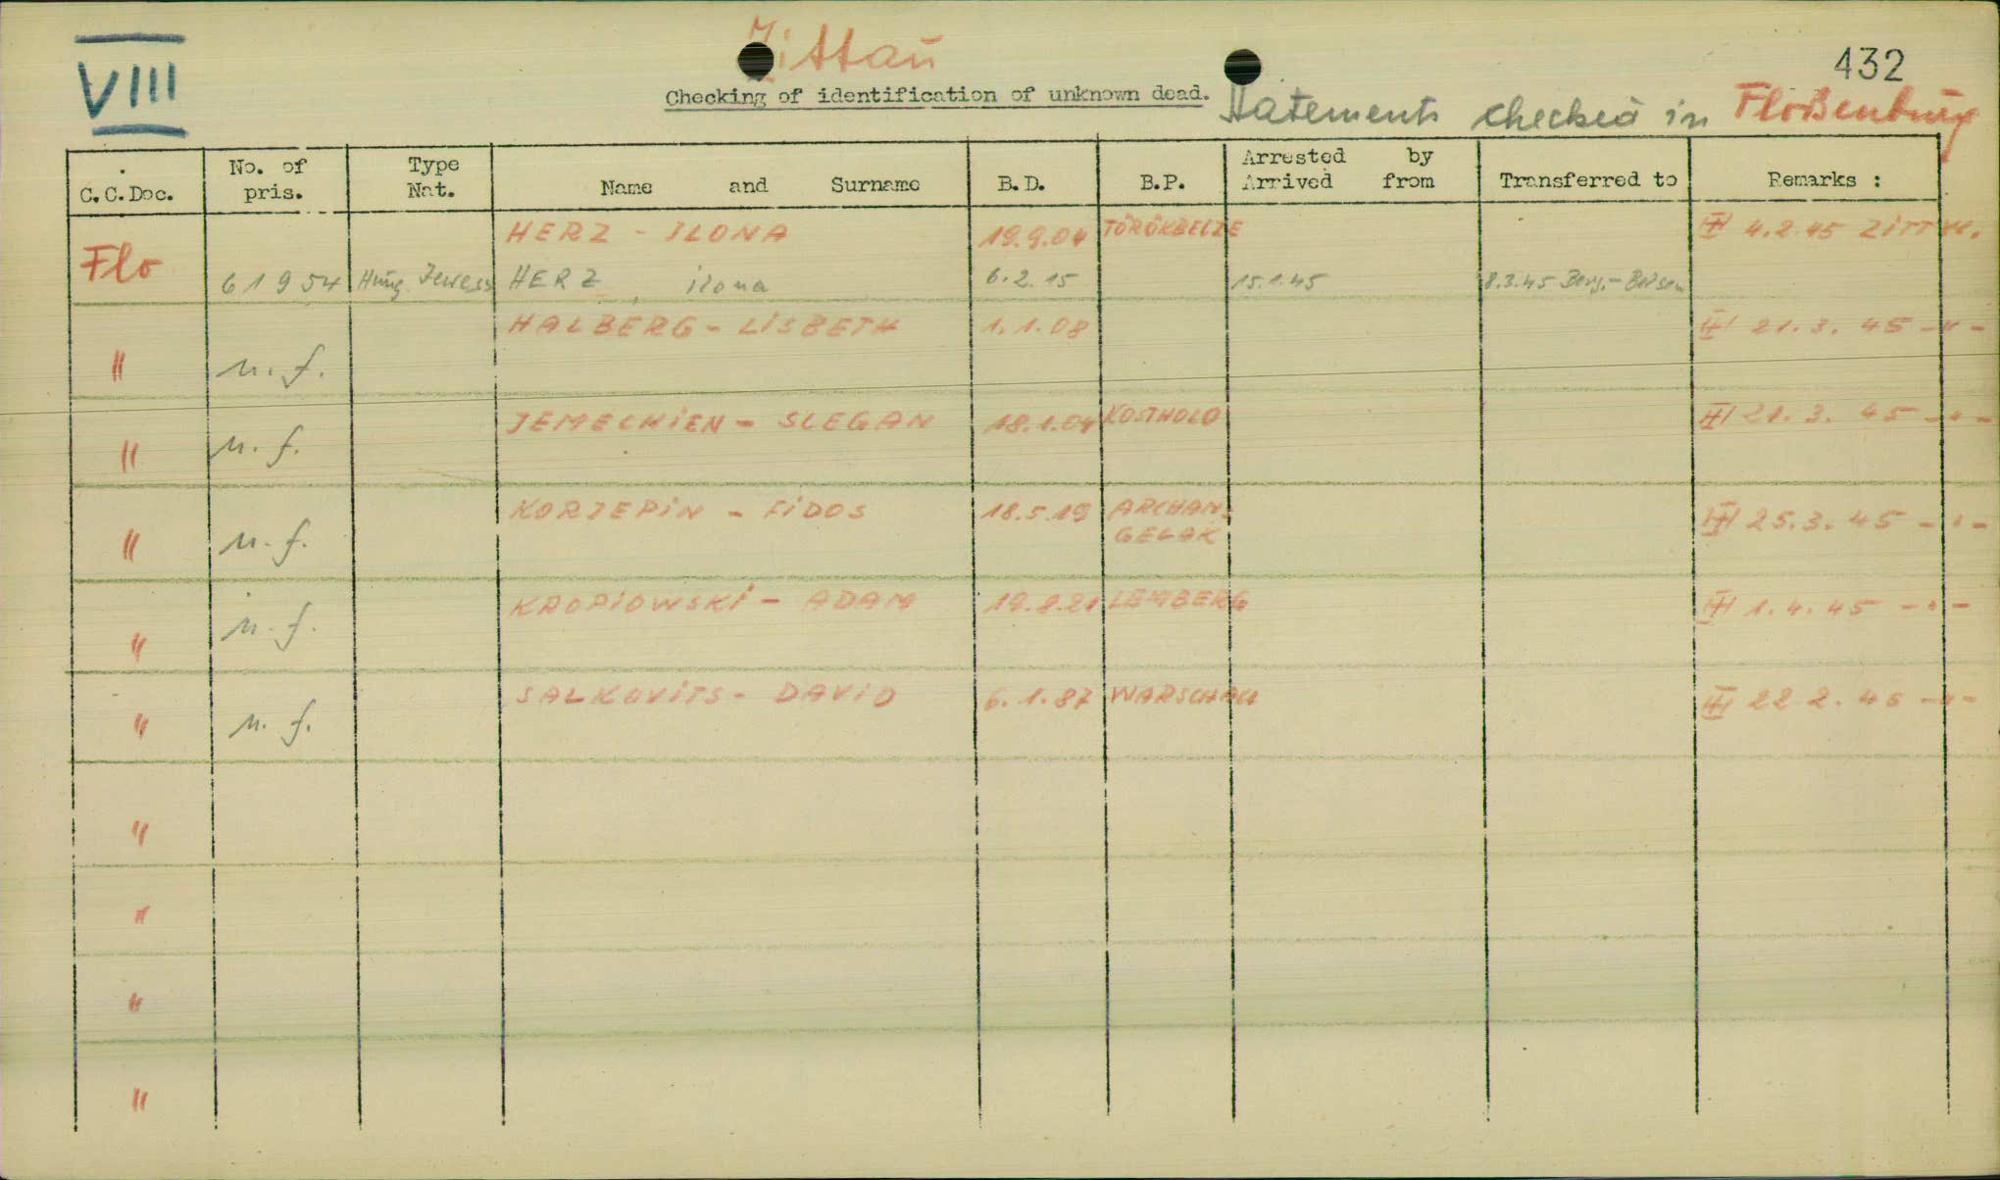 VIII
Zittau
432
Checking of identification of unknown dead. Statements checked in Floßenbürg
C.C.Doc. No. of pris. Type Nat. Name and Surname B.D. B.P. Arrested by Arrived from Transferred to Remarks :
HERZ - ILONA 19.9.04 4.2.45
Flo 61954 Hung. Jewess HERZ, ilona 6.2.15 15.1.45 8.3.45 Berg.-Belsen
HALBERG - LISBETH 1.1.08 21.3.45 -"-
" n.f.
JEMECHIEN - SLEGAN 18.1.04 KOSTHOLO 21.3.45 -"-
" n.f.
KORZEPIN - FIDOS 18.5.19 ARCHAN-
GELAK 25.3.45 -"-
" n.f.
KROPIOWSKI - ADAM LEMBERG 1.4.45 -"-
" n.f.
SALKOVITS - DAVID 6.1.87 WARSCHAU 22.2.45 -"-
" n.f.
"
"
"
"